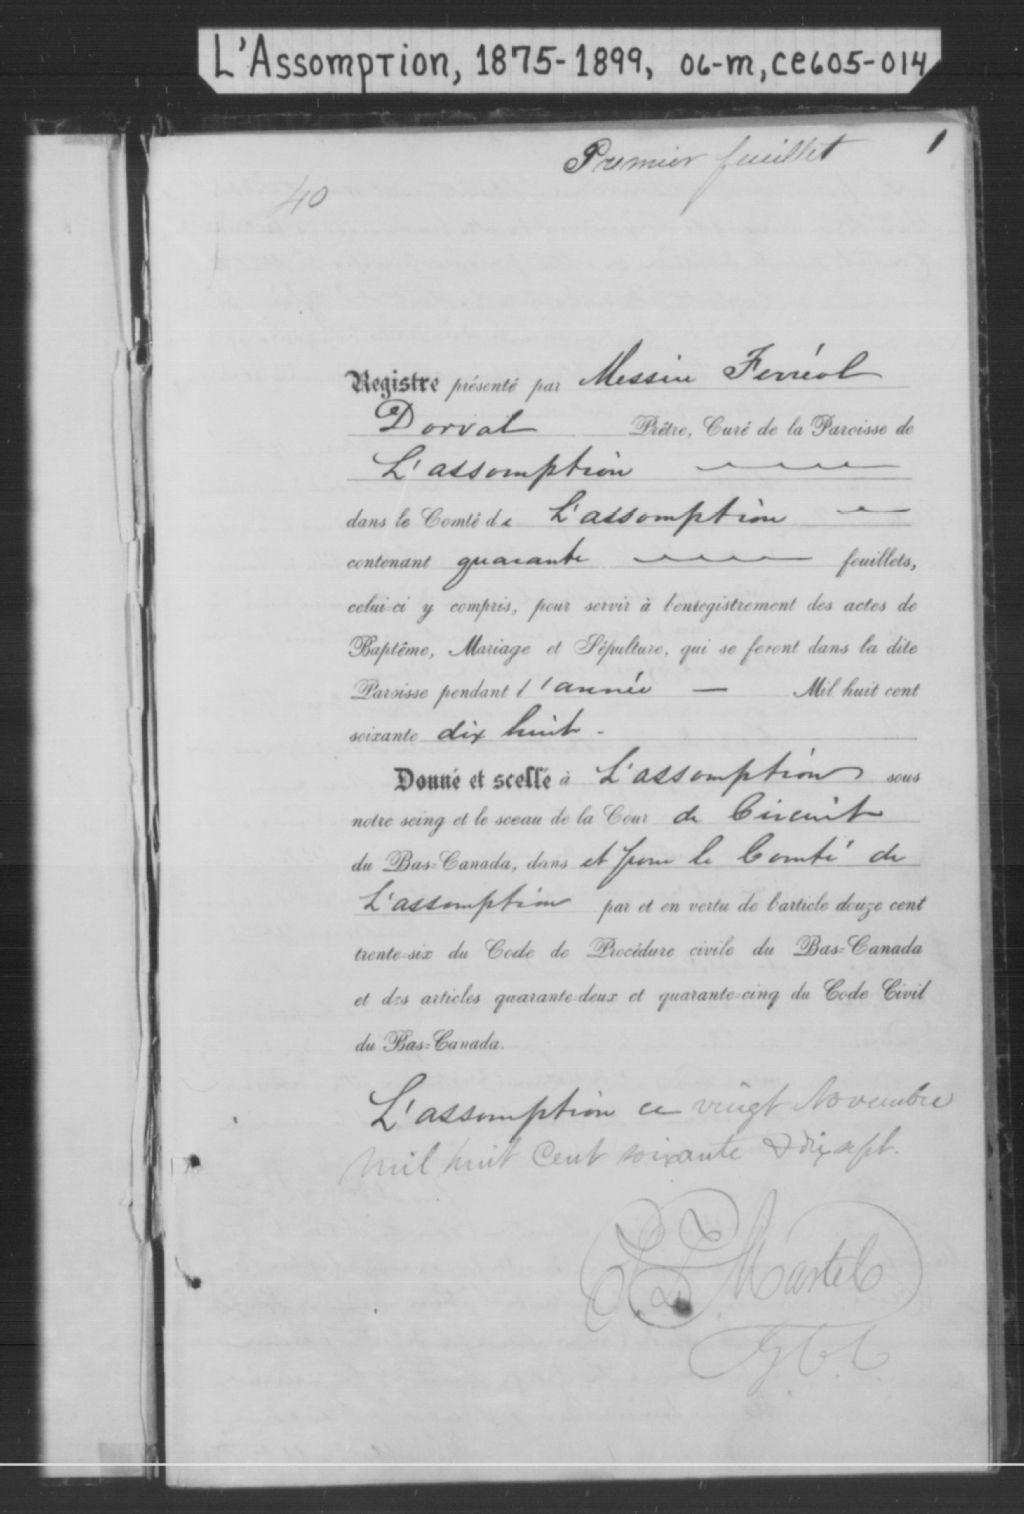 L'Assomption, 1875-1899, 06-m, ce605-014
Premier feuillet 1
40
Registre présenté par Messire Ferréol
Dorval Prêtre, Curé de la Paroisse de
L'assomption
dans le Comté de L'assomption
contenant quarante feuillets,
celui-ci y compris, pour servir à l'enregistrement des actes de
Baptême, Mariage et Sépulture, qui se feront dans la dite
Paroisse pendant l'année — Mil huit cent
soixante dix huit -
Donné et scellé à L'assomption sous
notre seing et le sceau de la Cour de Circuit
du Bas-Canada, dans et pour le Comté de
L'assomption par et en vertu de l'article douze cent
trente-six du Code de Procédure civile du Bas-Canada
et des articles quarante-deux et quarante-cinq du Code Civil
du Bas-Canada.
L'assomption ce vingt Novembre
mil huit Cent soixante & dix sept.
Martel